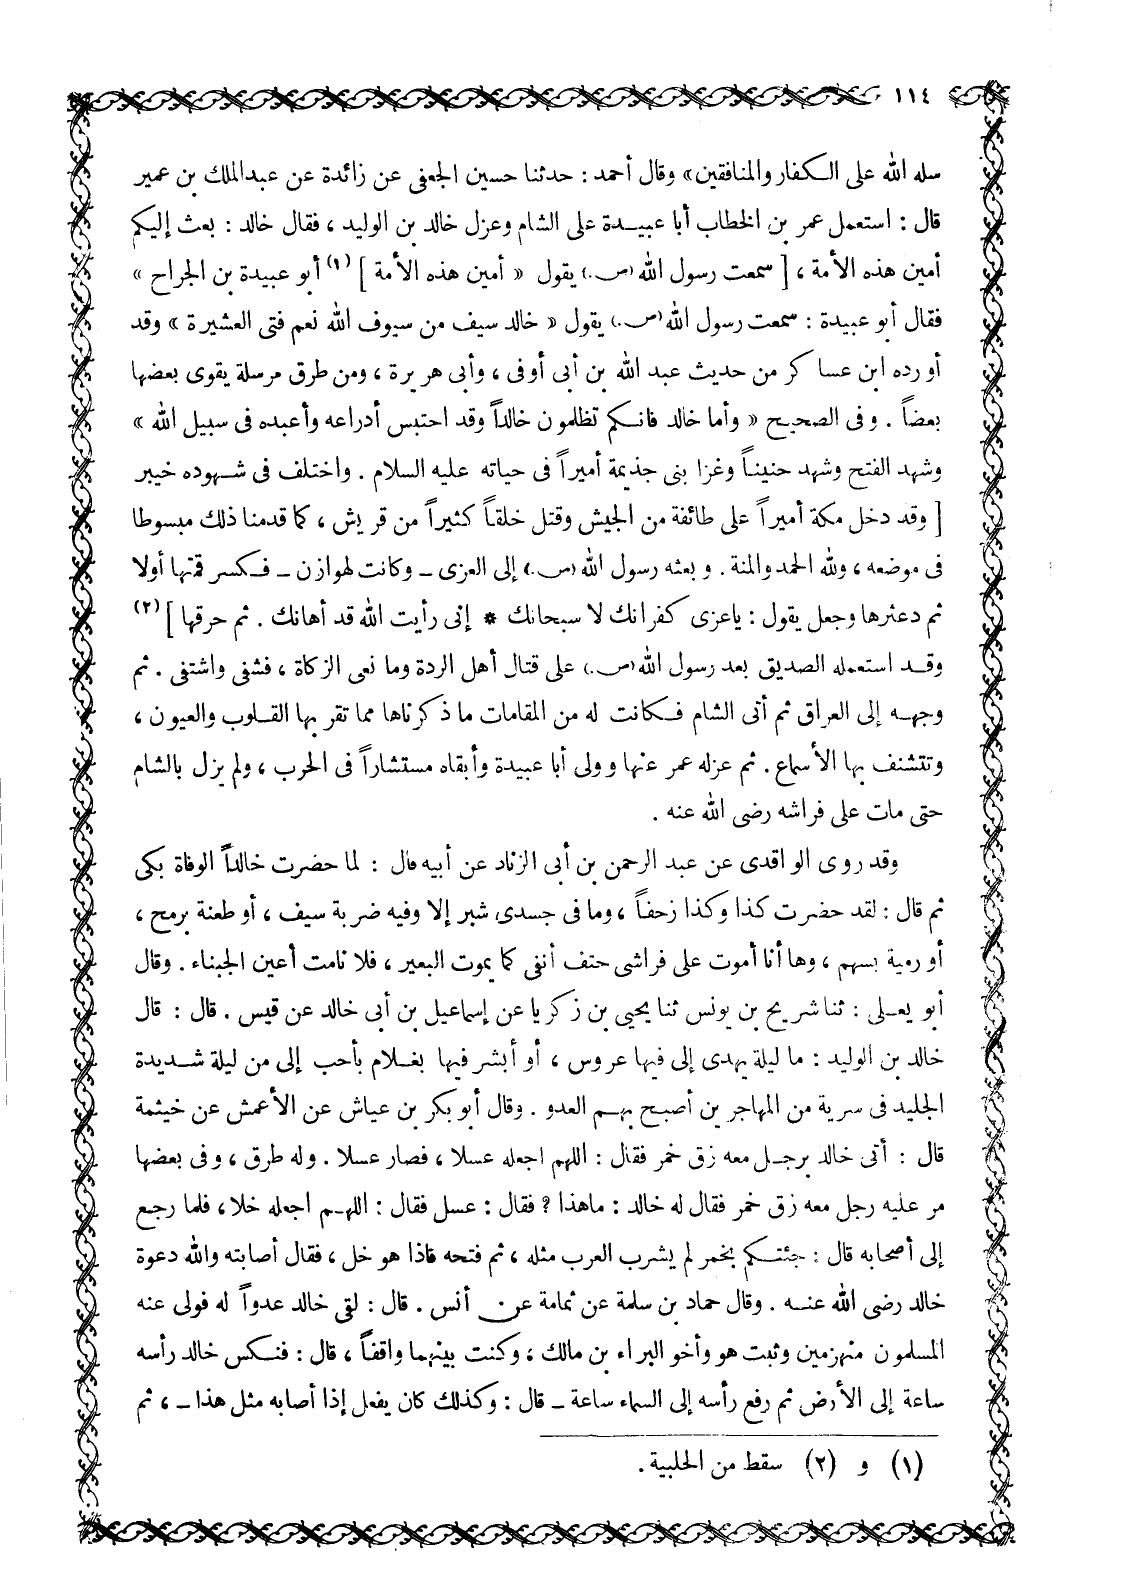 ١١٤
سله الله على الكفار والمنافقين» وقال أحمد : حدثنا حسين الجعفى عن زائدة عن عبدالملك بن عمير
قال : استعمل عمر بن الخطاب أبا عبيدة على الشام وعزل خالد بن الوليد ، فقال خالد : بعث إليكم
أمين هذه الأمة ، [ سمعت رسول الله (ص.) يقول « أمين هذه الأمة ] (١) أبو عبيدة بن الجراح »
فقال أبو عبيدة : سمعت رسول الله (ص.) يقول « خالد سيف من سيوف الله نعم فتى العشيرة » وقد
أورده ابن عساكر من حديث عبد الله بن أبى أوفى ، وأبى هريرة ، ومن طرق مرسلة يقوى بعضها
بعضاً . وفى الصحيح « وأما خالد فانكم تظلمون خالداً وقد احتبس أدراعه وأعبده فى سبيل الله »
وشهد الفتح وشهد حنيناً وغزا بنى جذيمة أميراً فى حياته عليه السلام . واختلف فى شهوده خيبر
[ وقد دخل مكة أميراً على طائفة من الجيش وقتل خلقاً كثيراً من قريش ، كما قدمنا ذلك مبسوطا
فى موضعه ، ولله الحمد والمنة . وبعثه رسول الله (ص.) إلى العزى ــ وكانت لهوازن ــ فكسر قمتها أولا
ثم دعثرها وجعل يقول : ياعزى كفرانك لا سبحانك * إنى رأيت الله قد أهانك . ثم حرقها ] (٢)
وقد استعمله الصديق بعد رسول الله (ص.) على قتال أهل الردة وما نعى الزكاة ، فشفى واشتفى . ثم
وجهه إلى العراق ثم أتى الشام فكانت له من المقامات ما ذكرناها مما تقر بها القلوب والعيون ،
وتتشنف بها الأسماع . ثم عزله عمر عنها وولى أبا عبيدة وأبقاه مستشاراً فى الحرب ، ولم يزل بالشام
حتى مات على فراشه رضى الله عنه .
وقد روى الواقدى عن عبد الرحمن بن أبى الزناد عن أبيه قال : لما حضرت خالداً الوفاة بكى
ثم قال : لقد حضرت كذا وكذا زحفاً ، وما فى جسدى شبر إلا وفيه ضربة سيف ، أو طعنة برمح ،
أو رمية بسهم ، وها أنا أموت على فراشى حتف أنفى كما يموت البعير ، فلا نامت أعين الجبناء . وقال
أبو يعلى : ثنا شريح بن يونس ثنا يحيى بن زكريا عن إسماعيل بن أبى خالد عن قيس . قال : قال
خالد بن الوليد : ما ليلة يهدى إلى فيها عروس ، أو أبشر فيها بغلام بأحب إلى من ليلة شديدة
الجليد فى سرية من المهاجرين أصبح بهم العدو . وقال أبو بكر بن عياش عن الأعمش عن خيثمة
قال : أتى خالد برجل معه زق خمر فقال : اللهم اجعله عسلا ، فصار عسلا . وله طرق ، وفى بعضها
مر عليه رجل معه زق خمر فقال له خالد : ماهذا ؟ فقال : عسل فقال : اللهم اجعله خلا ، فلما رجع
إلى أصحابه قال : جئتكم بخمر لم يشرب العرب مثله ، ثم فتحه فاذا هو خل ، فقال أصابته والله دعوة
خالد رضى الله عنه . وقال حماد بن سلمة عن ثمامة عن أنس . قال : لقى خالد عدواً له فولى عنه
المسلمون منهزمين وثبت هو وأخو البراء بن مالك ، وكنت بينهما واقفاً ، قال : فنكس خالد رأسه
ساعة إلى الأرض ثم رفع رأسه إلى السماء ساعة ــ قال : وكذلك كان يفعل إذا أصابه مثل هذا ــ ، ثم
(١) و (٢) سقط من الحلبية .